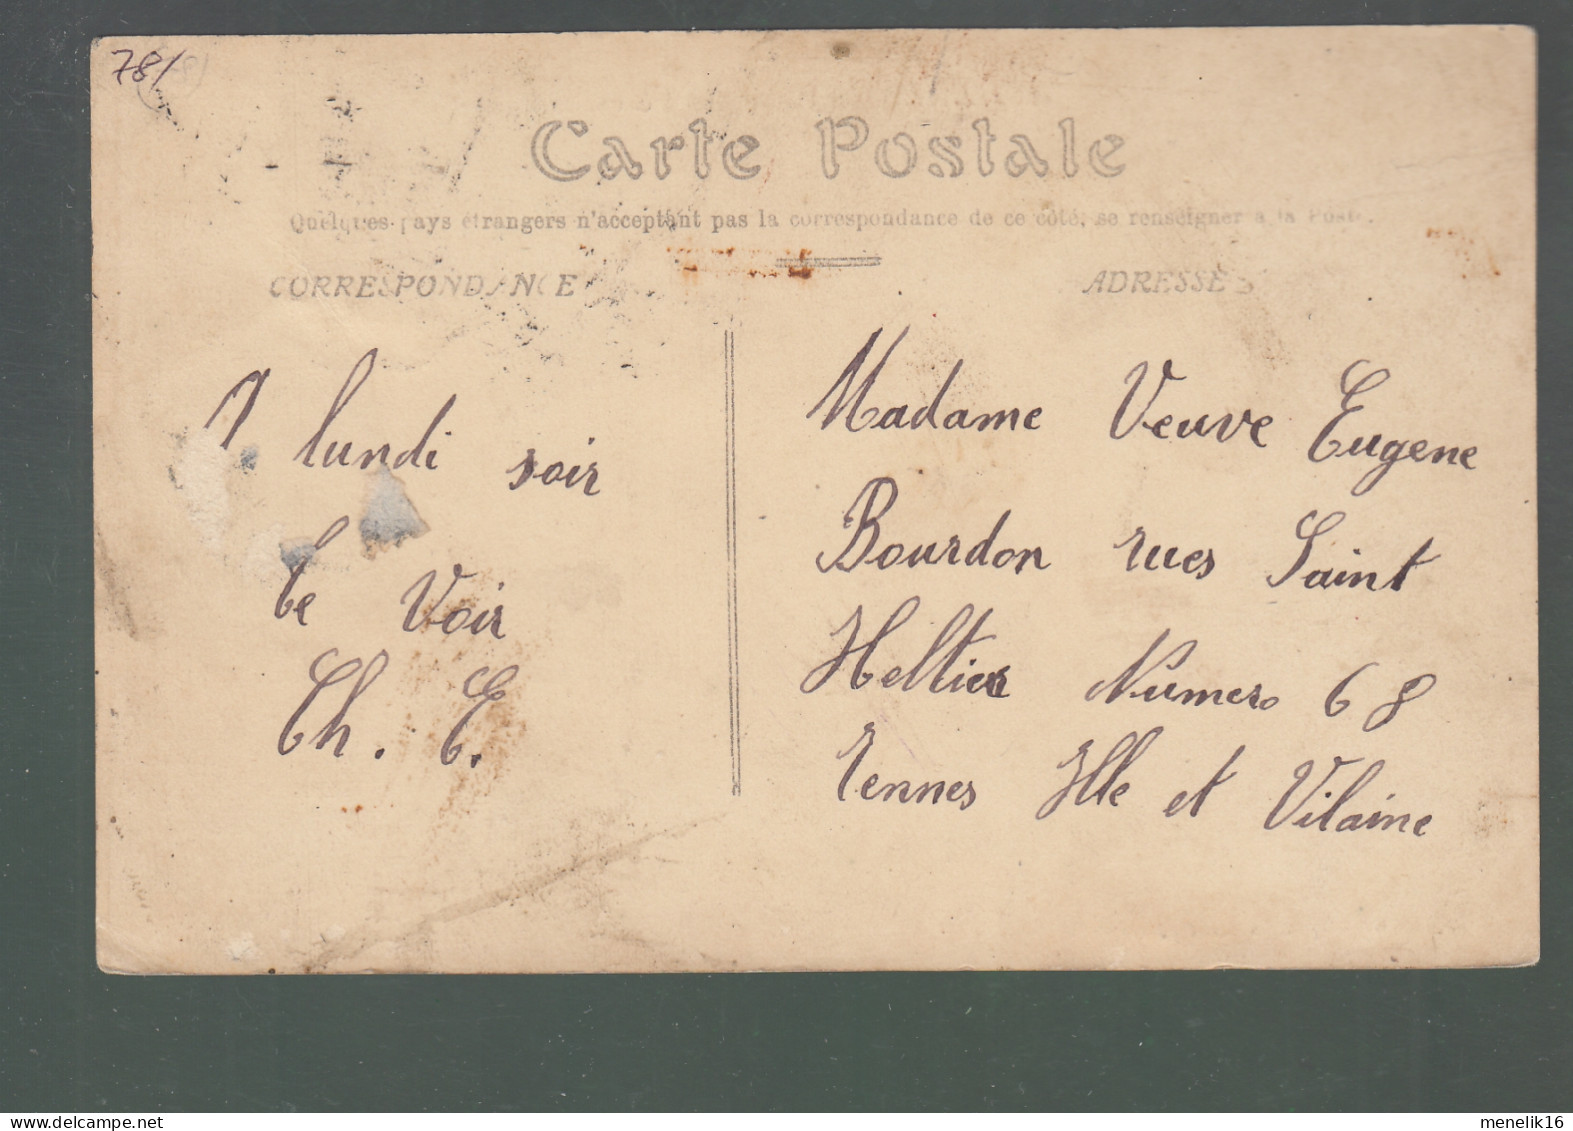 78/
Carte Postale
Quelques pays étrangers n'acceptant pas la correspondance de ce côté, se renseigner à la Poste.
CORRESPONDANCE
ADRESSE
lundi soir
te Voir
Th. T.
Madame Veuve Eugene
Bourdon rues Saint
Heltier Numero 68
rennes Ille et Vilaine
menelik16